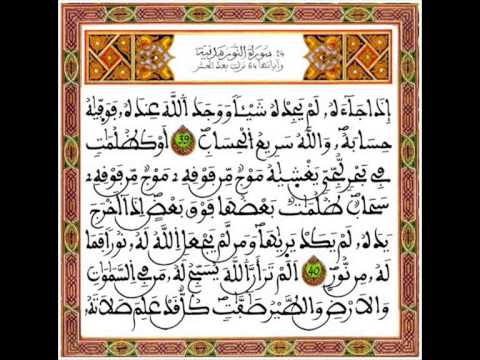 24 سورة النور مدنية
وآياتها 64 نزلت بعد الحشر
إِذَا جَآءَهُۥ لَمْ يَجِدْهُ شَيْـًٔا وَوَجَدَ اَللَّهَ عِندَهُۥ فَوَفّ۪يٰهُ
حِسَابَهُۥ وَاللَّهُ سَرِيعُ اُلْحِسَابِ 39 أَوْ كَظُلُمَٰتٍ
فِي بَحْرٍ لُّجِّيٍّ يَغْشَيٰهُ مَوْجٌ مِّن فَوْقِهِۦ مَوْجٌ مِّن فَوْقِهِۦ
سَحَابٌ ظُلُمَٰتٌ بَعْضُهَا فَوْقَ بَعْضٍ اِذَآ أَخْرَجَ
يَدَهُۥ لَمْ يَكَدْ يَر۪يٰهَا وَمَن لَّمْ يَجْعَلِ اِللَّهُ لَهُۥ نُوراً فَمَا
لَهُۥ مِن نُّورٍ 40 اَلَمْ تَرَ أَنَّ اَللَّهَ يُسَبِّحُ لَهُۥ مَن فِي اِلسَّمَٰوَٰتِ
وَالَارْضِ وَالطَّيْرُ صَٰٓفَّٰتٍ كُلٌّ قَدْ عَلِمَ صَلَاتَهُۥ